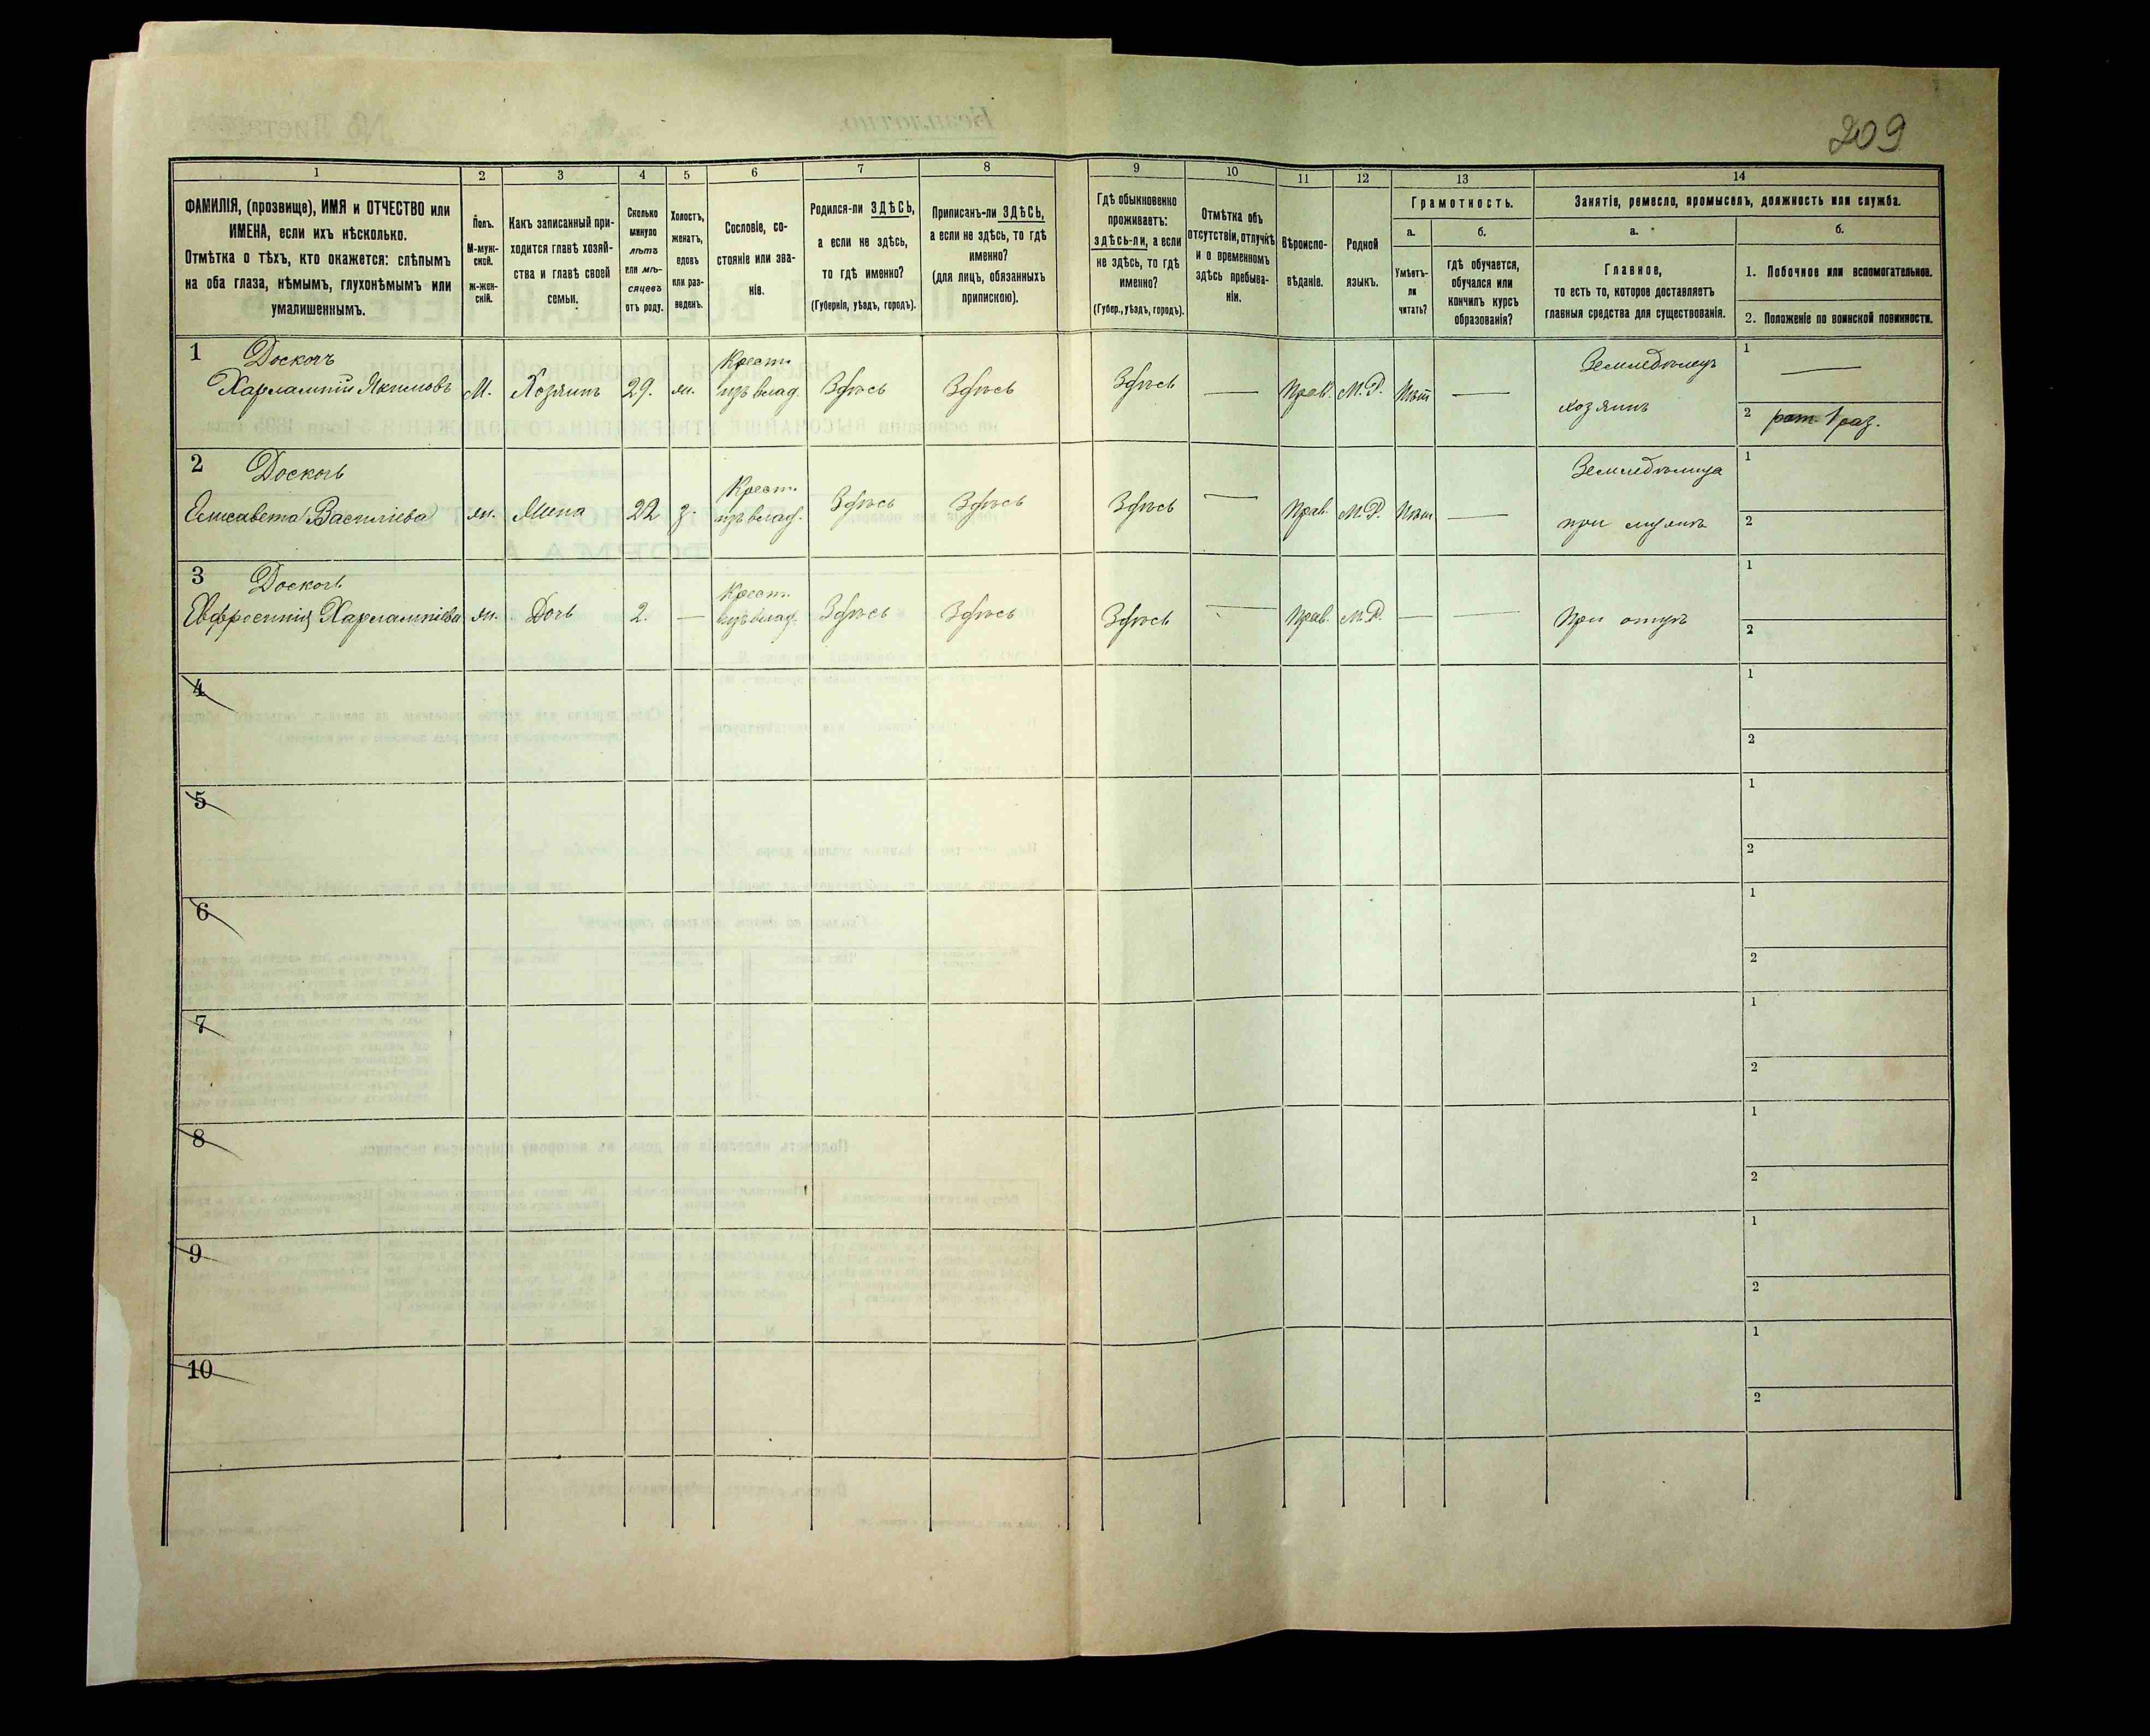 209
1 2 3 4 5 6 7 8 9 10 11 12 13 14
ФАМИЛІЯ, (прозвище), ИМЯ и ОТЧЕСТВО или
ИМЕНА, если ихъ нѣсколько.
Отмѣтка о тѣхъ, кто окажется: слѣпымъ
на оба глаза, нѣмымъ, глухонѣмымъ или
умалишеннымъ.
Полъ.
М-муж-
ской.
ж-жен-
скій.
Какъ записанный при-
ходится главѣ хозяй-
ства и главѣ своей
семьи.
Сколько
минуло
лѣтъ
или мѣ-
сяцевъ
отъ роду.
Холостъ,
женатъ,
вдовъ
или раз-
веденъ.
Сословіе, со-
стояніе или зва-
ніе.
Родился-ли ЗДѢСЬ,
а если не здѣсь,
то гдѣ именно?
(Губернія, уѣздъ, городъ).
Приписанъ-ли ЗДѢСЬ,
а если не здѣсь, то гдѣ
именно?
(для лицъ, обязанныхъ
припискою).
Гдѣ обыкновенно
проживаетъ:
здѣсь-ли, а если
не здѣсь, то гдѣ
именно?
(Губер., уѣздъ, городъ).
Отмѣтка объ
отсутствіи, отлучкѣ
и о временномъ
здѣсь пребыва-
ніи.
Вѣроиспо-
вѣданіе.
Родной
языкъ.
Грамотность.
а.
Умѣетъ-
ли
читать?
б.
гдѣ обучается,
обучался или
кончилъ курсъ
образованія?
Занятіе, ремесло, промыселъ, должность или служба.
а.
Главное,
то есть то, которое доставляетъ
главныя средства для существованія.
б.
1. Побочное или вспомогательное.
2. Положеніе по воинской повинности.
1 Доскочъ Крест. Земледѣлецъ 1 —
Харлампій Якимовъ М. Хозяинъ 29. ж. изъ влад. Здѣсь Здѣсь Здѣсь — Прав. М.Р. Нѣт — хозяинъ 2 рат. 1 раз.
2 Доскочь Крест. Земледѣлица 1
Елисавета Василіева ж. Жена 22 з. изъ влад. Здѣсь Здѣсь Здѣсь — Прав. М.Р. Нѣт — при мужѣ 2
3 Доскочь Крест. 1
Евфросинія Харлампіева ж. Дочь 2. — изъ влад. Здѣсь Здѣсь Здѣсь — Прав. М.Р. — — При отцѣ 2
4 1
2
5 1
2
6 1
2
7 1
2
8 1
2
9 1
2
10 1
2